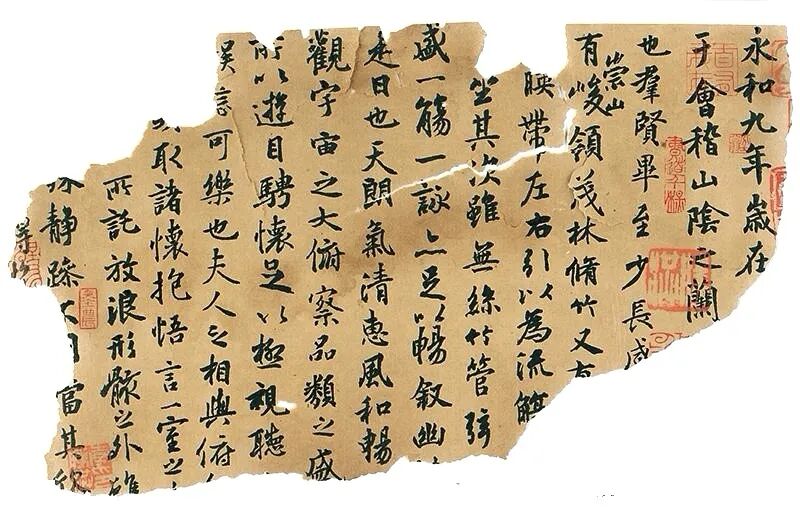 永和九年歲在
于會稽山陰之蘭
也羣賢畢至少長咸
有崇山峻領茂林脩竹又有
暎帶左右引以為流觴
坐其次雖無絲竹管弦
盛一觴一詠亦足以暢敘幽
是日也天朗氣清惠風和暢
觀宇宙之大俯察品類之盛
所以遊目騁懷足以極視聽
娛信可樂也夫人之相與俯
取諸懷抱悟言一室之
所託放浪形骸之外雖
殊靜躁不同當其欣